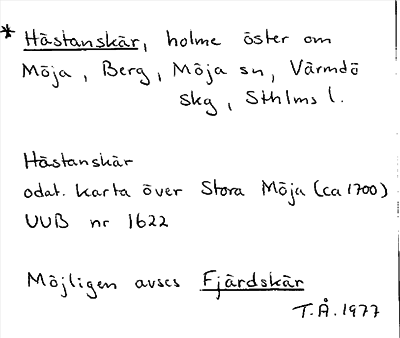 * Hästanskär, holme öster om
Möja, Berg, Möja sn, Värmdö
skg, Sthlms l.
Hästanskär
odat. karta över Stora Möja (ca 1700)
UUB nr 1622
Möjligen avses Fjärdskär
T.Å. 1977